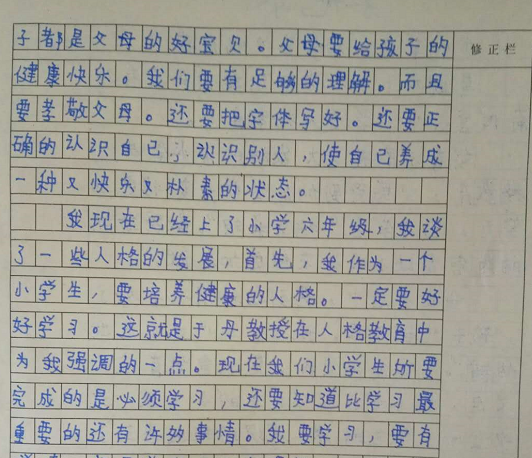 子都是父母的好宝贝。父母要给孩子的
修正栏
健康快乐。我们要有足够的理解。而且
要孝敬父母。还要把字体写好。还要正
确的认识自己,认识别人,使自己养成
一种又快乐又朴素的状态。
我现在已经上了小学六年级,我谈
了一些人格的发展,首先,我作为一个
小学生,要培养健康的人格。一定要好
好学习。这就是于丹教授在人格教育中
为我强调的一点。现在我们小学生所要
完成的是必须学习,还要知道比学习最
重要的还有许多事情。我要学习,要有